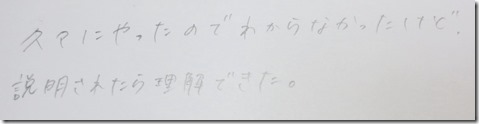 久々にやったのでわからなかったけど、
説明されたら理解できた。